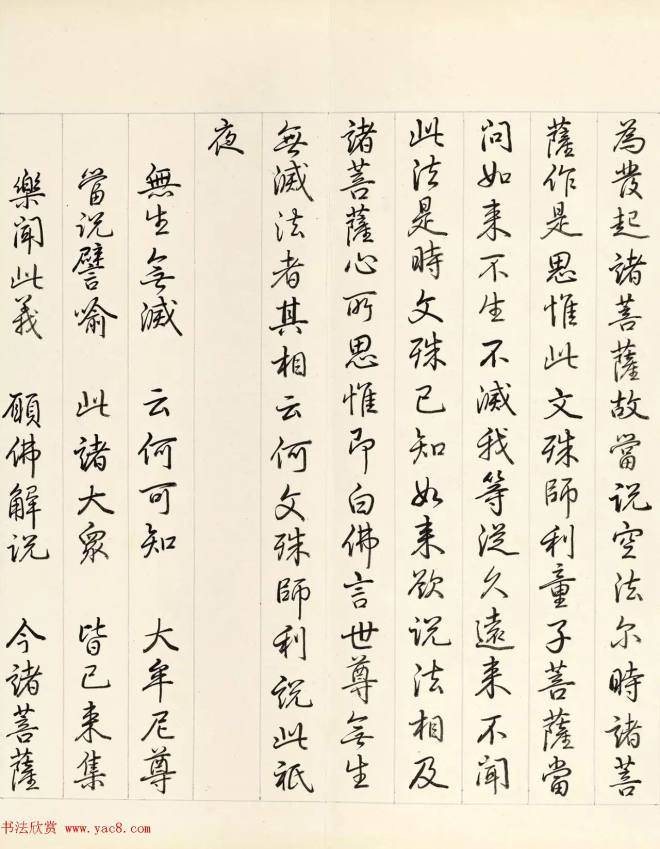 為發起諸菩薩故當説空法尔時諸菩
薩作是思惟此文殊師利童子菩薩當
问如来不生不滅我等從久遠来不闻
此法是時文殊已知如来欲说法相及
諸菩薩心所思惟即白佛言世尊無生
無滅法者其相云何文殊師利説此祇
夜
無生無滅　云何可知　大牟尼尊
當说譬喻　此諸大眾　皆已来集
樂聞此義　願佛解说　今諸菩薩
书法欣赏 www.yac8.com